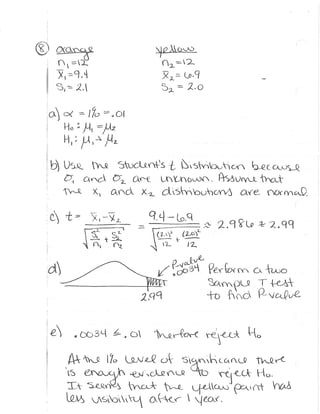 ⑧ orange yellow
n₁=12 n₂=12
x̄₁=9.4 x̄₂=6.9
S₁=2.1 S₂=2.0
a) α =1% =.01
H₀: μ₁=μ₂
H₁: μ₁>μ₂
b) Use the Student's t Distribution because
σ₁ and σ₂ are unknown. Assume that
the x₁ and x₂ distributions are normal.
c) t= x̄₁-x̄₂ / √(S₁²/n₁ + S₂²/n₂) = 9.4-6.9 / √((2.1)²/12 + (2.0)²/12) ≈ 2.986 ≈ 2.99
d) P-value .0034 Perform a two
Sample T test
2.99 to find P-value
e) .0034 ≤ .01 therfore reject H₀
At the 1% level of significance there
is enough evidence to reject H₀.
It seems that the yellow paint has
less visibility after 1 year.